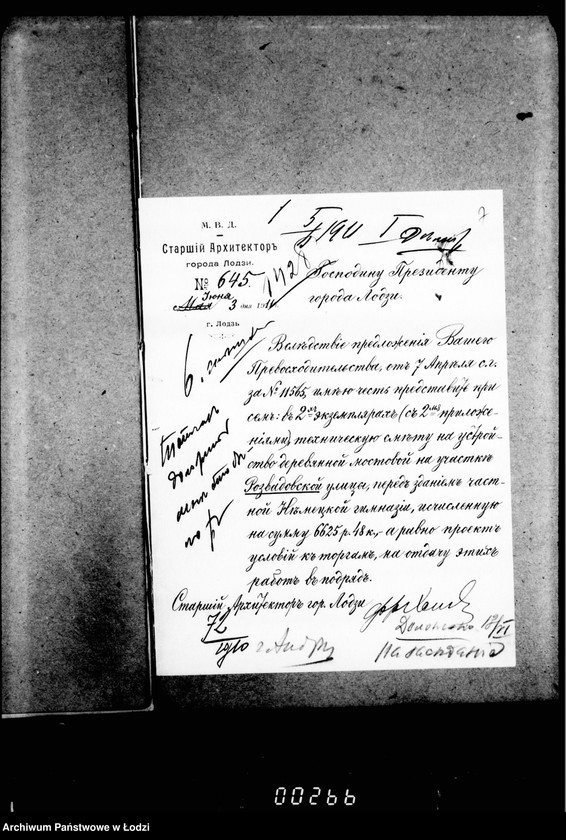 1 5/6 1911 I
7
М. В. Д.
Старшій Архитекторъ
города Лодзи.
№ 645.
1428
Іюня
Мая 3 дня 1911
г. Лодзь
Господину Президенту
города Лодзи.
Вслѣдствіе предложенія Вашего
Превосходительства, отъ 7 Апрѣля с.г.
за № 11565, имѣю честь представить при
семъ: въ 2хъ экземплярахъ (съ 2мя приложе-
ніями) техническую смѣту на устрой-
ство деревянной мостовой на участкѣ
Розвадовской улицы, передъ зданіемъ част-
ной Нѣмецкой гимназіи, исчисленную
на сумму 6625 р. 48 к.,- а равно проектъ
условій къ торгамъ, на отдачу этихъ
работъ въ подрядъ.
Старшій Архитекторъ гор. Лодзи
72
1910
Доложено
00266
Archiwum Państwowe w Łodzi